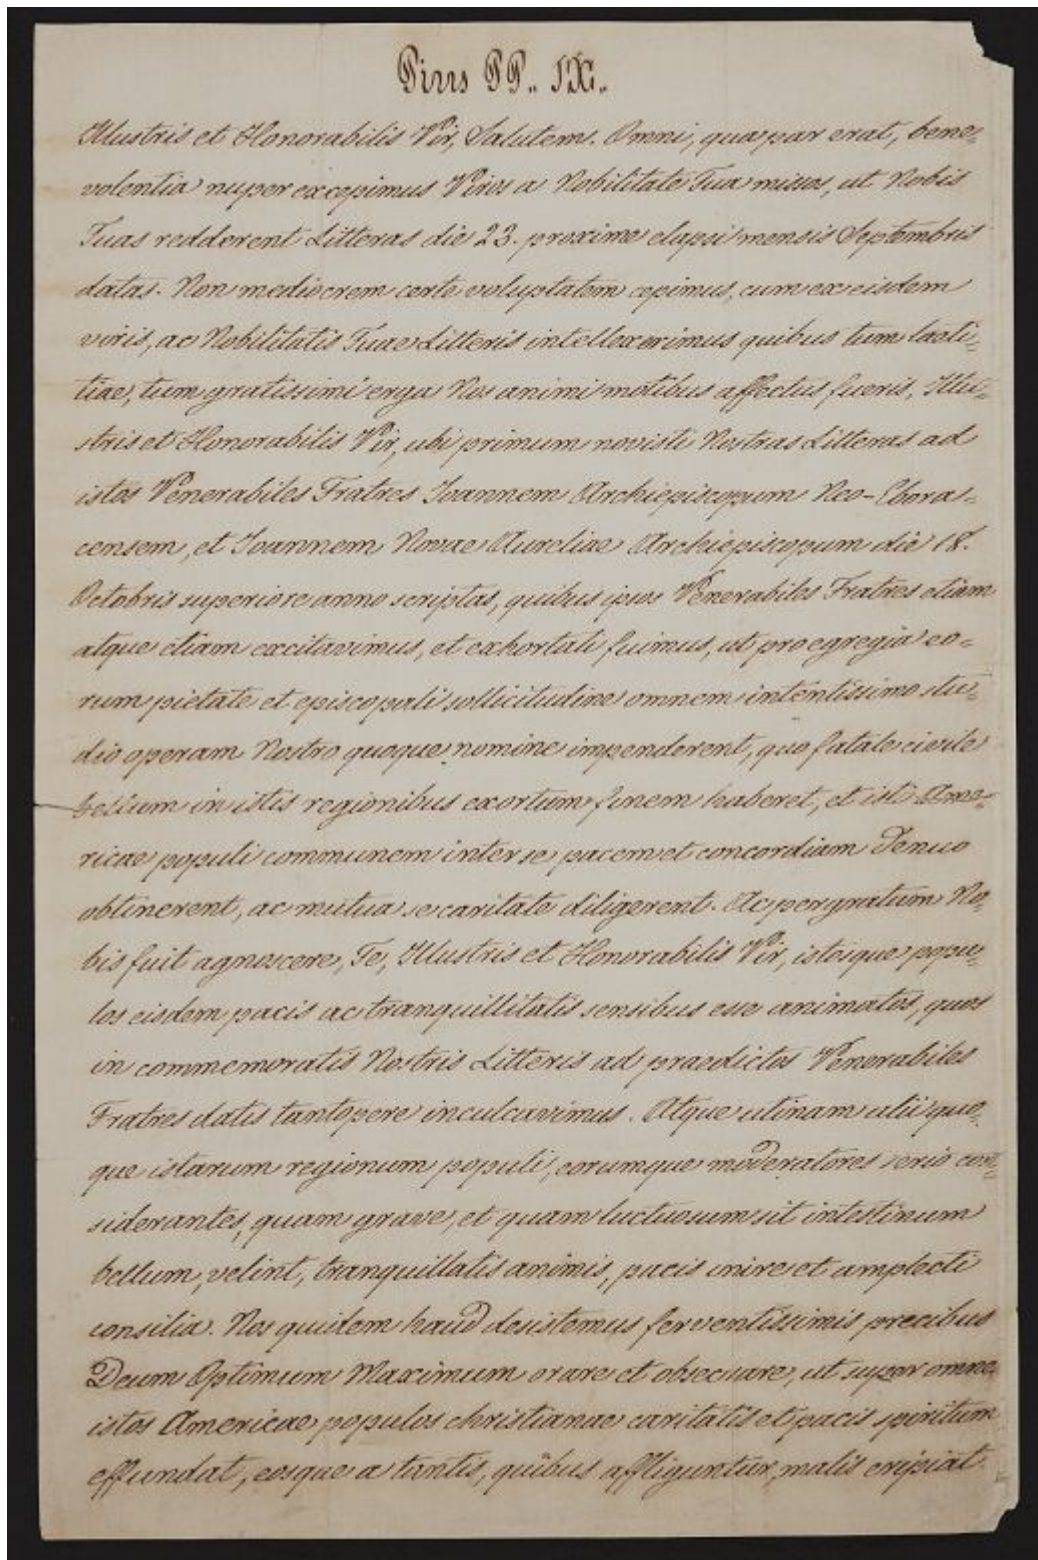 Pius PP. IX.
Illustris et Honorabilis Vir, Salutem. Omni, qua par erat, bene=
volentia nuper excepimus Viros a Nobilitate Tua missos, ut Nobis
Tuas redderent Litteras die 23. proxime elapsi mensis Septembris
datas. Non mediocrem certe voluptatem cepimus, cum ex eisdem
viris, ac Nobilitatis Tuae Litteris intellexerimus quibus tum laeti=
tiae, tum gratissimi erga Nos animi motibus affectus fueris, Illu=
stris et Honorabilis Vir, ubi primum novisti Nostras Litteras ad
istos Venerabiles Fratres Joannem Archiepiscopum Neo-Ebora=
censem, et Joannem Novae Aureliae Archiepiscopum die 18.
Octobris superiore anno scriptas, quibus ipsos Venerabiles Fratres etiam
atque etiam excitavimus, et exhortati fuimus, ut pro egregia eo=
rum pietate et episcopali sollicitudine omnem intentissimo stu=
dio operam Nostro quoque nomine impenderent, quo fatale civile
bellum in istis regionibus exortum finem haberet, et isti Ame=
ricae populi communem inter se pacem et concordiam denuo
obtinerent, ac mutua se caritate diligerent. Ac pergratum No=
bis fuit agnoscere, Te, Illustris et Honorabilis Vir, istosque popu=
los eisdem pacis ac tranquillitatis sensibus esse animatos, quos
in commemoratis Nostris Litteris ad praedictos Venerabiles
Fratres datis tantopere inculcavimus. Atque utinam alii quo=
que istarum regionum populi, eorumque moderatores serio con=
siderantes, quam grave, et quam luctuosum sit intestinum
bellum, velint, tranquillatis animis, pacis inire et amplecti
consilia. Nos quidem haud desistemus ferventissimis precibus
Deum Optimum Maximum orare et obsecrare, ut super omnes
istos Americae populos christianae caritatis et pacis spiritum
effundat, eosque a tantis, quibus affliguntur, malis eripiat.